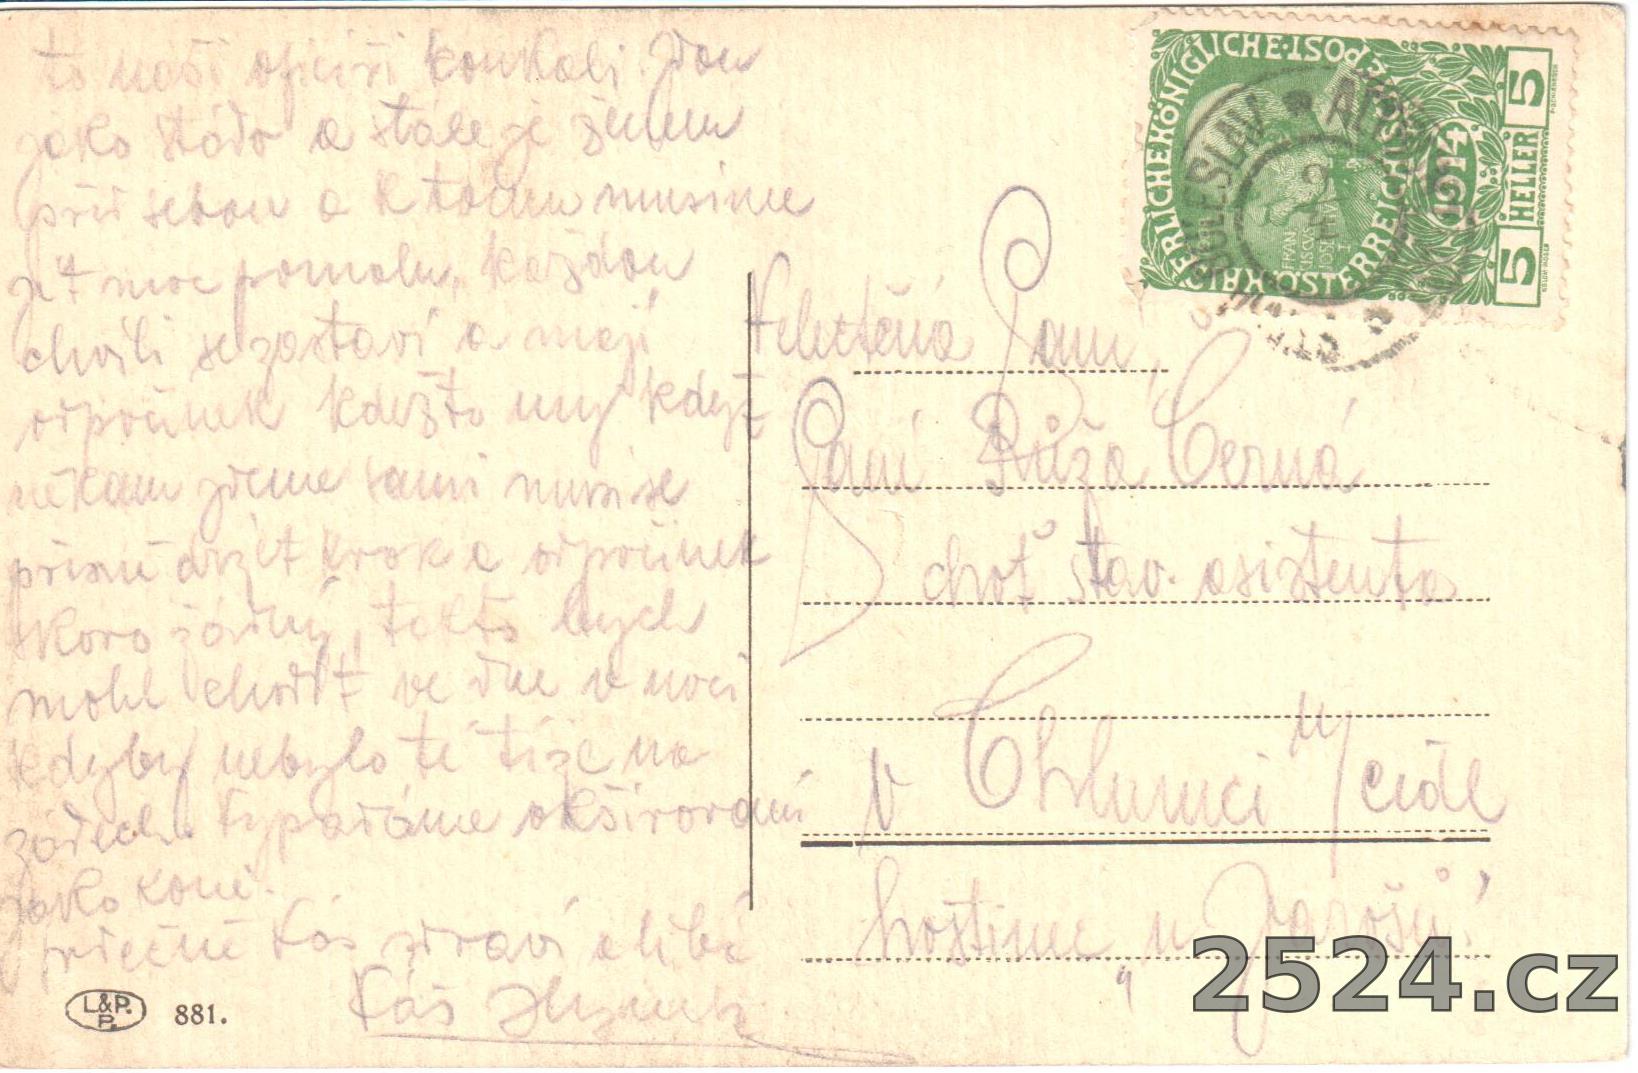 to naši oficíři koukali. Jdou
jako stádo a stále je ženem
před sebou a k tomu musíme
jet moc pomalu, každou
chvíli se zastaví a mají
odpočinek kdežto my když
někam jdeme sami musí se
přísně držet krok a odpočinek
skoro žádný, takto bych
mohl chodit ve dne v noci
kdyby nebylo té tíže na
zádech. Vypadáme okšírovaní
jako koně.
srdečně Vás zdraví a líbá
Váš
L.&P. P. 881.
KAISERLICHE KÖNIGLICHE ÖSTERREICHISCHE POST
FRANCISCUS JOSEF I
1914
5 HELLER 5
Velectěná Paní,
Paní Růža Černá
choť stav. asistenta
v Chlumci n/Cidl
hostinec "u Jarošů"
2524.cz